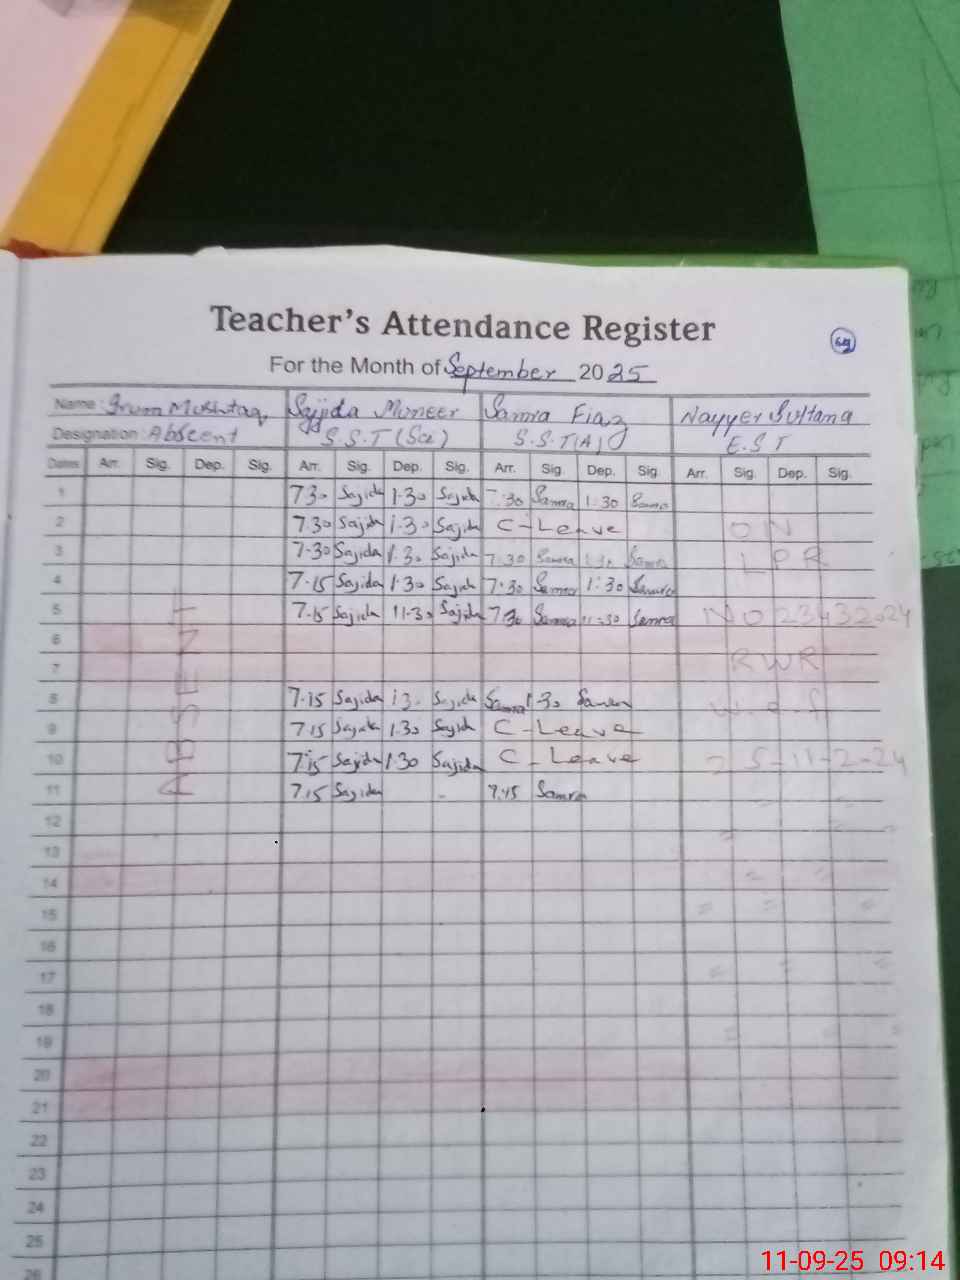 Teacher's Attendance Register
69
For the Month of September 2025
Name: Irum Mushtaq Sajjida Muneer Samra Fiaz Nayyer Sultana
Designation: Abscent S.S.T (Sce) S.S.T(A) E.S.T
Dates Arr. Sig. Dep. Sig. Arr. Sig. Dep. Sig. Arr. Sig. Dep. Sig. Arr. Sig. Dep. Sig.
1 7.30 Sajida 1.30 Sajida 7:30 Samra 1:30 Samra
2 7.30 Sajida 1.30 Sajida C-Leave ON
3 7.30 Sajida 1.30 Sajida 7:30 Samra 1:30 Samra LPR
4 7.15 Sajida 1.30 Sajida 7:30 Samra 1:30 Samra
5 7.15 Sajida 11.30 Sajida 7:30 Samra 11:30 Samra NO
6
7 RWR
ABSENT
8 7.15 Sajida 1.30 Sajida Samra 1.30 Samra w.e.f
9 7.15 Sajida 1.30 Sajida C-Leave
10 7.15 Sajida 1.30 Sajida C-Leave
11 7.15 Sajida - 7:15 Samra
12
13
14
15
16
17
18
19
20
21
22
23
24
25
26
11-09-25 09:14